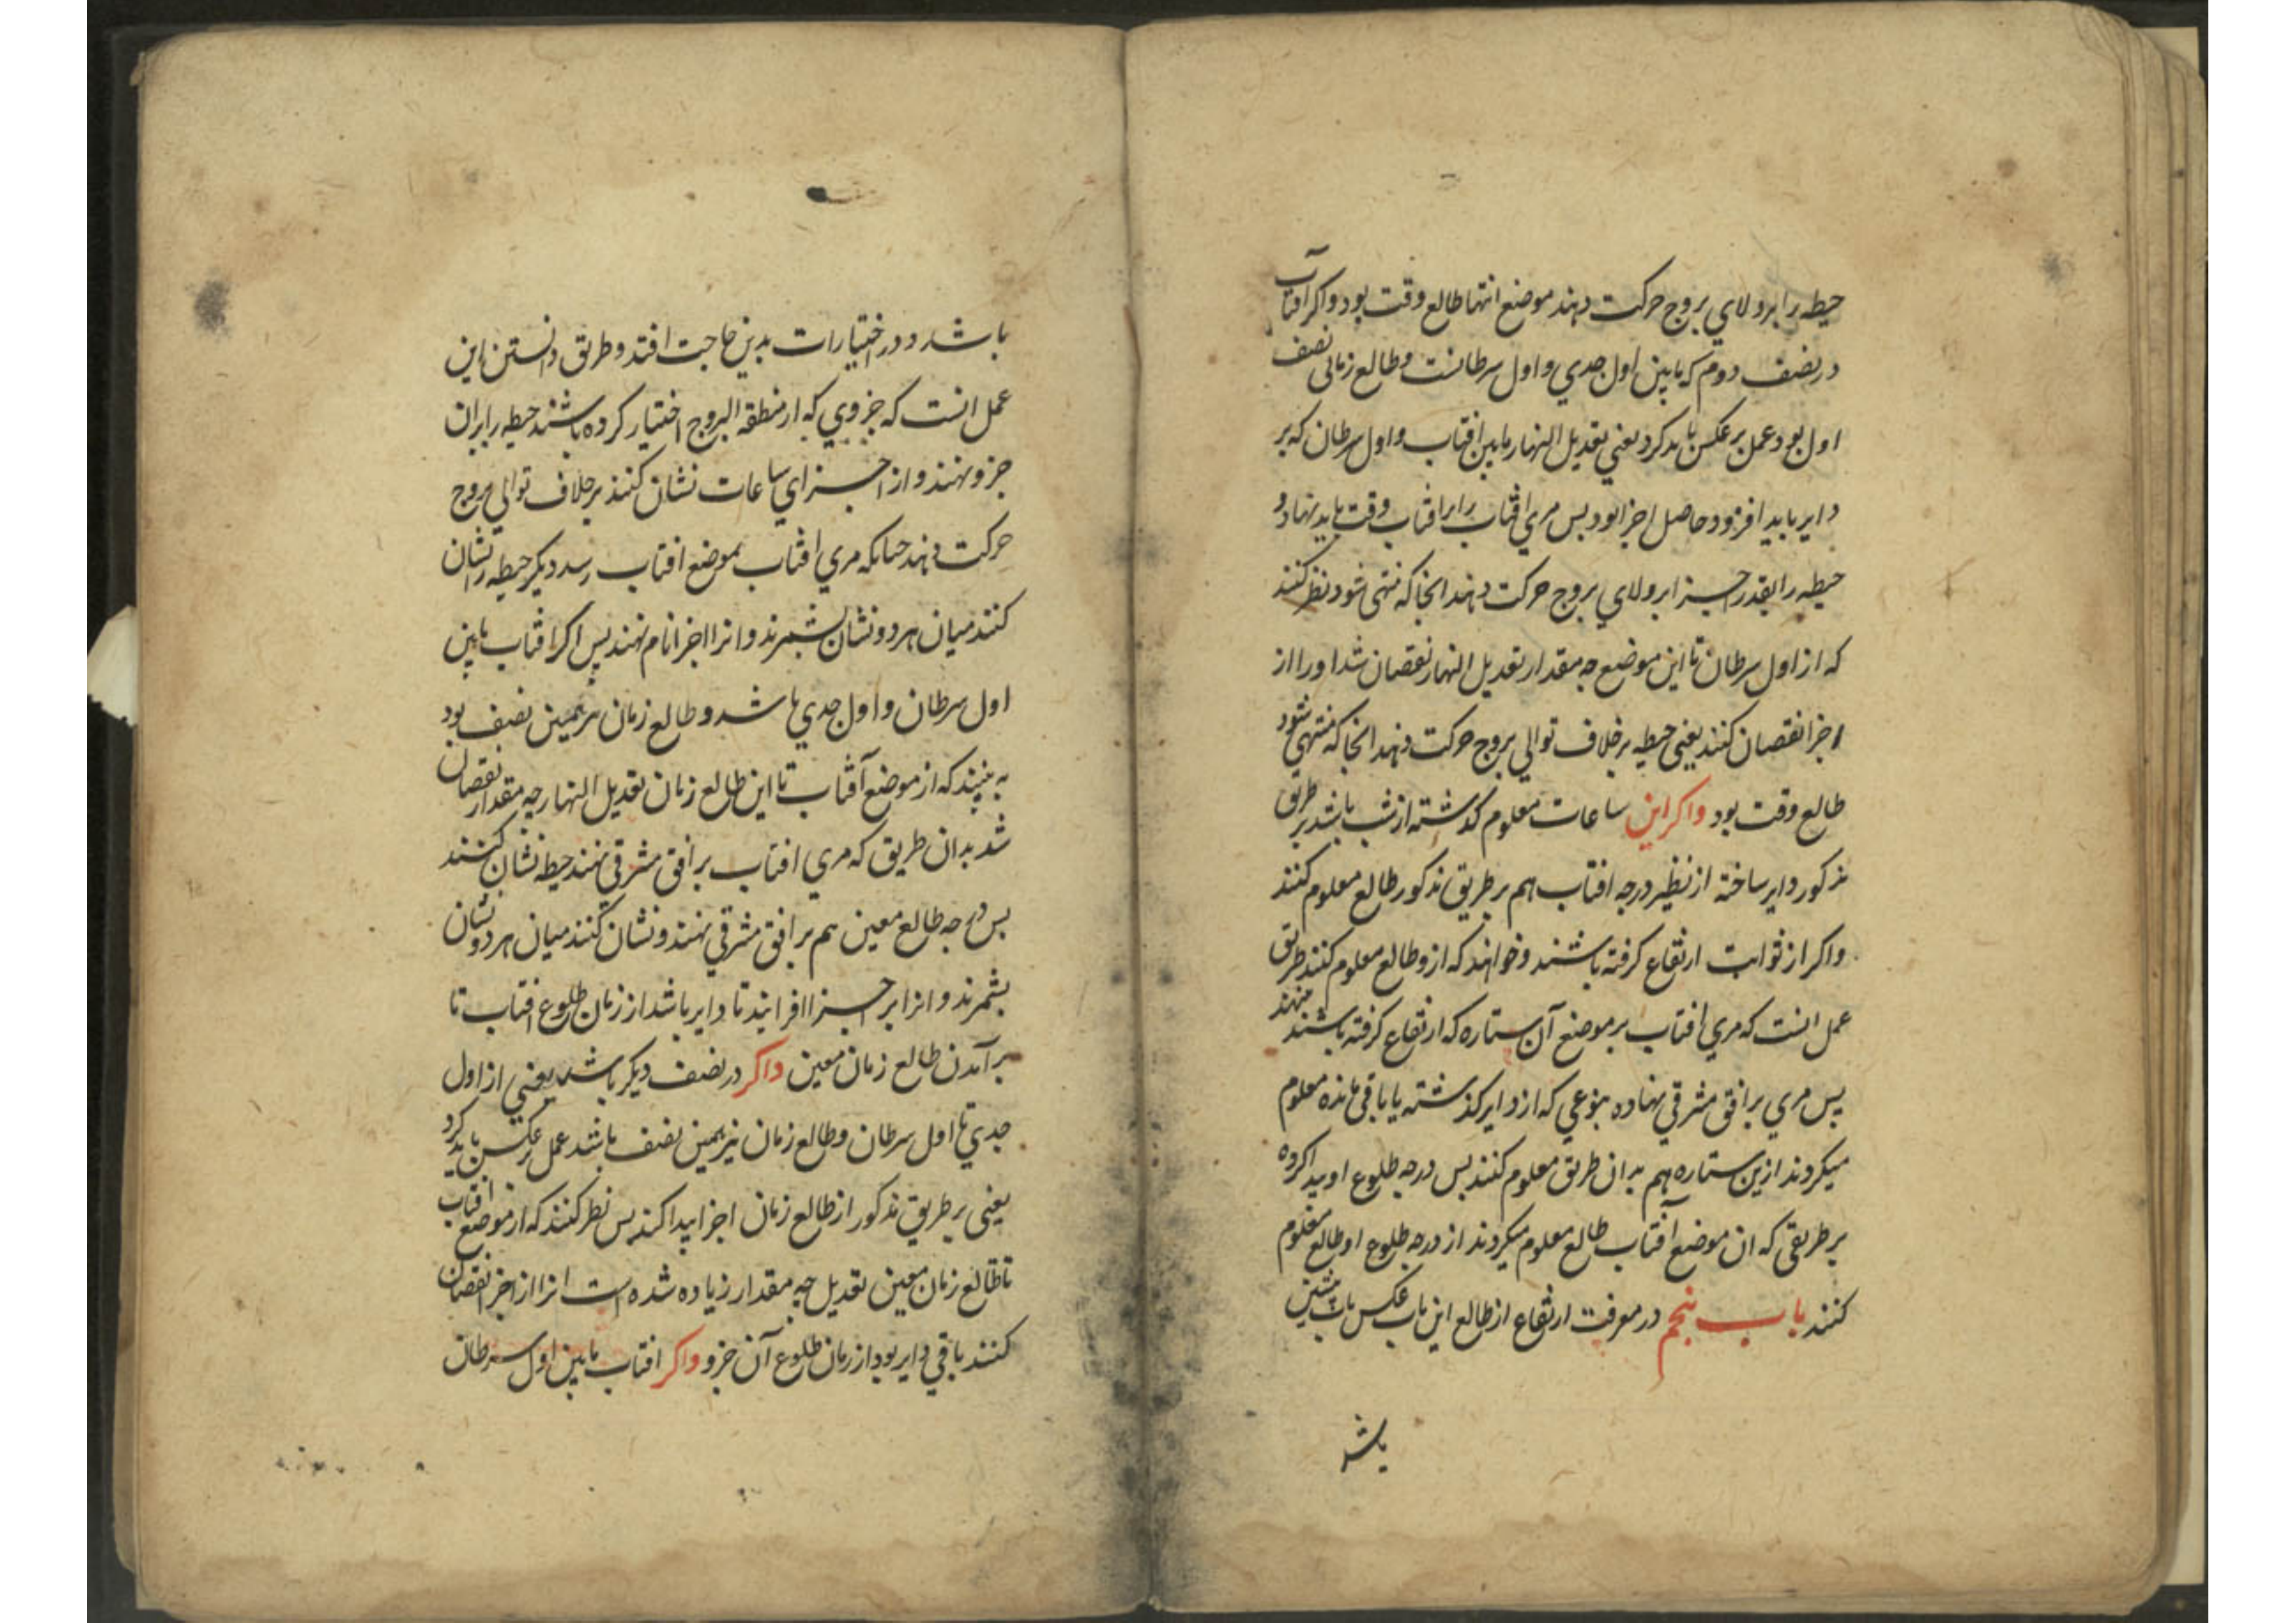 حیطه را برولای بروج حرکت دهند موضع انتها طالع وقت بود واکر افتاب
در نصف دوم که مابین اول جدی و اول سرطانست وطالع زمانی نصف
اول بود عمل بر عکس باید کرد یعنی تعدیل النهار مابین افتاب و اول سرطان که بر
دایر باید افزود حاصل اجزا بود بس مری افتاب را برافتاب وقت باید نهاد و
حیطه را بقدر اجزا برولای بروج حرکت دهند انجا که منتهی شود نظر کنند
که از اول سرطان تا این موضع چه مقدار تعدیل النهار نقصان شد اورا از
اجزا نقصان کنند یعنی حیطه بر خلاف توالی بروج حرکت دهند انجا که منتهی شود
طالع وقت بود واکر این ساعات معلوم کذشته از شب باشد بر طریق
مذکور دایر ساخته از نظیر درجه افتاب هم بر طریق مذکور طالع معلوم کنند
واکر از ثوابت ارتفاع کرفته باشند وخواهند که ازو طالع معلوم کنند طریق
عمل انست که مری افتاب بر موضع آن ستاره که ارتفاع کرفته باشند نهند
پس مری بر افق مشرقی نهاده بنوعی که از دایر کذشته یا باقی مانده معلوم
میکردند ازین ستاره هم بدان طریق معلوم کنند بس درجه طلوع او پیدا کرده
بر طریقی که ان موضع آفتاب طالع معلوم میکردند از درجه طلوع او طالع معلوم
کنند باب پنجم در معرفت ارتفاع از طالع این باب عکس باب پیشین
باشد و در اختیارات بدین حاجت افتد وطریق دانستن این
عمل انست که جزوی که از منطقه البروج اختیار کرده باشند حیطه را بران
جزو نهند و از اجزای ساعات نشان کنند بر خلاف توالی بروج
حرکت دهند چنانکه مری افتاب بموضع افتاب رسد دیکر حیطه را نشان
کنند میان هر دو نشان بشمرند وانرا اجزا نام نهند پس اکر افتاب مابین
اول سرطان و اول جدی باشد و طالع زمان نیز همین نصف بود
به بینند که از موضع آفتاب تا این طالع زمان تعدیل النهار چه مقدار نقصان
شد بدان طریق که مری افتاب بر افق مشرقی نهند حیطه نشان کنند
بس درجه طالع معین هم بر افق مشرقی نهند و نشان کنند میان هر دو نشان
بشمرند و انرا بر اجزا افزایند تا دایر باشد از زمان طلوع افتاب تا
برآمدن طالع زمان معین واکر در نصف دیکر باشد یعنی از اول
جدی تا اول سرطان وطالع زمان نیز همین نصف باشد عمل بر عکس باید کرد
یعنی بر طریق مذکور از طالع زمان اجزا پیدا کنند بس نظر کنند که از موضع افتاب
تا طالع زمان معین تعدیل چه مقدار زیاده شده است انرا از اجزا نقصان
کنند باقی دایر بود از زمان طلوع آن جزو واکر افتاب مابین اول سرطان